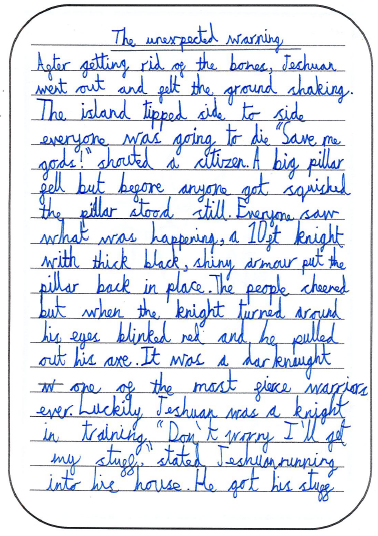 The unexpected warning
After getting rid of the bones, Jeshuan
went out and felt the ground shaking.
The island tipped side to side
everyone was going to die "Save me
gods!" shouted a citizen. A big pillar
fell but before anyone got squished
the pillar stood still. Everyone saw
what was happening, a 10ft knight
with thick black, shiny armour put the
pillar back in place. The people cheered
but when the knight turned around
his eyes blinked red and he pulled
out his axe. It was a darknaught
one of the most fierce warriors
ever. Luckily Jeshuan was a knight
in training, "Don't worry I'll get
my stuff," stated Jeshuan running
into his house. He got his stuff